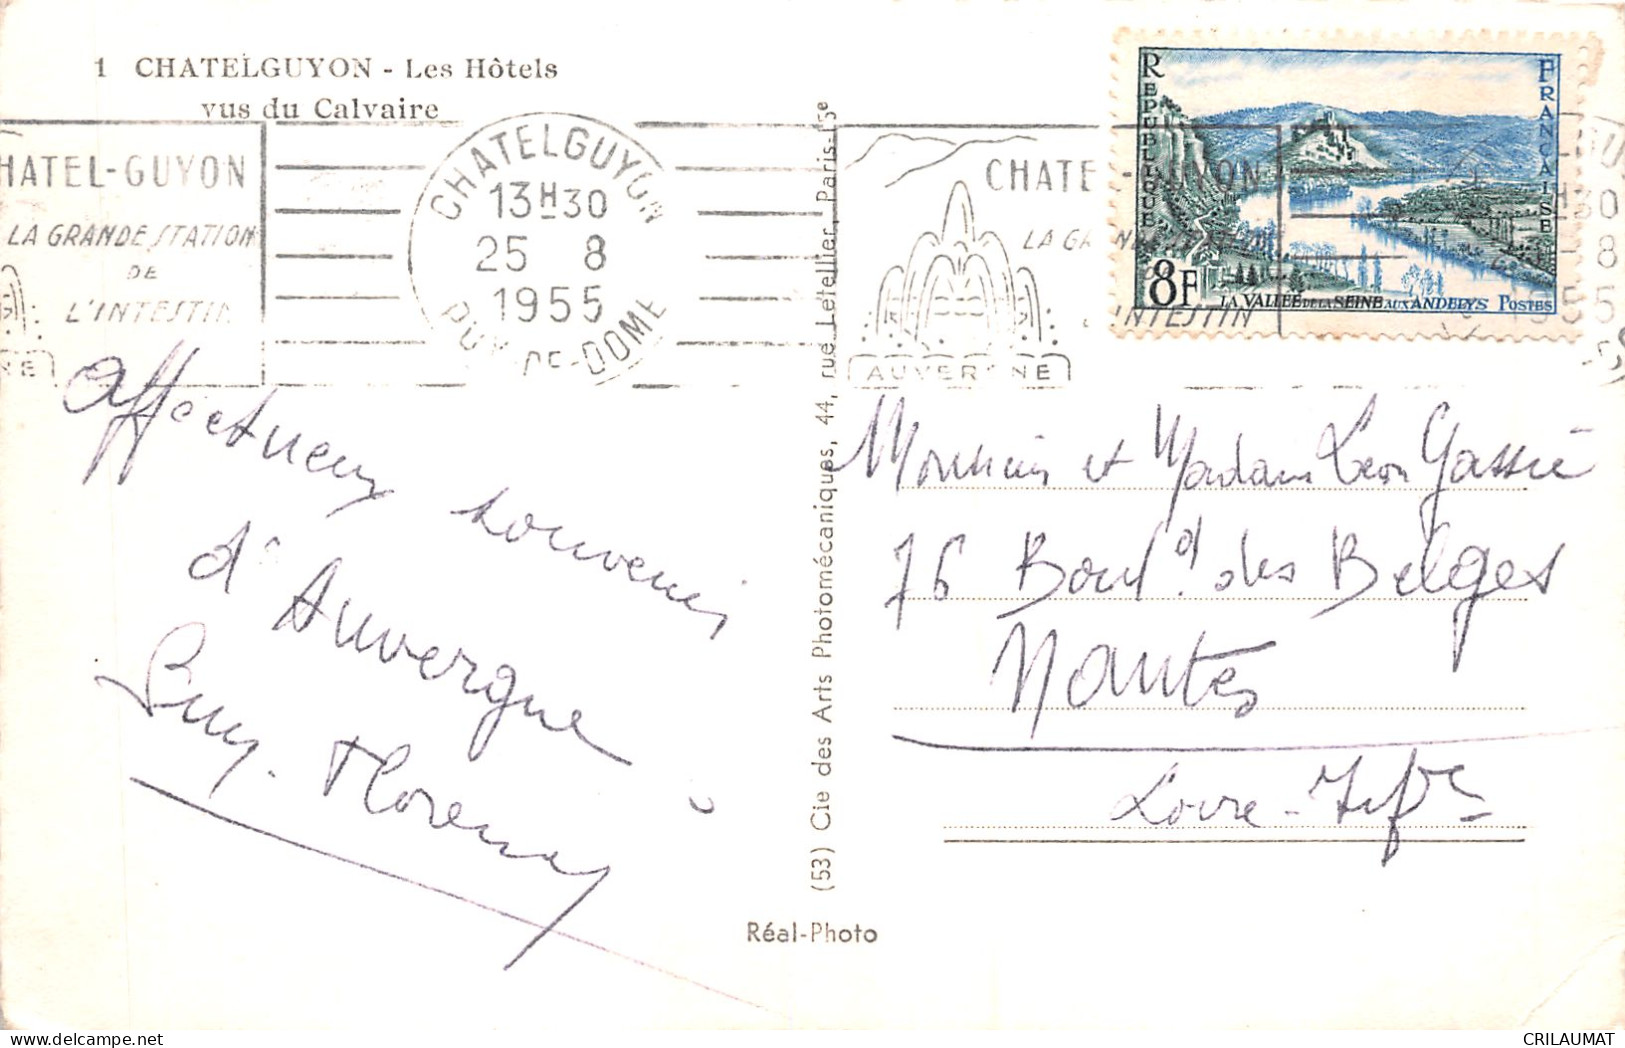 1 CHATELGUYON - Les Hôtels
vus du Calvaire
HATEL-GUYON
LA GRANDE STATION
DE
L'INTESTIN
NE
CHATELGUYON
13H30
25 8
1955
PUY-DE-DOME
CHATE -GUYON
LA GRANDE STATION
INTESTIN
AUVERGNE
H30
8
1955
REPUBLIQUE
FRANÇAISE
8F
LA VALLEE DE LA SEINE AUX ANDELYS POSTES
Affectueux souvenirs
d'Auvergne
(53) Cie des Arts Photomécaniques, 44, rue Letellier, Paris-15e
Réal-Photo
Monsieur et Madame Léon Gassié
76 Boul.d des Belges
Nantes
Loire-Infre
CRILAUMAT